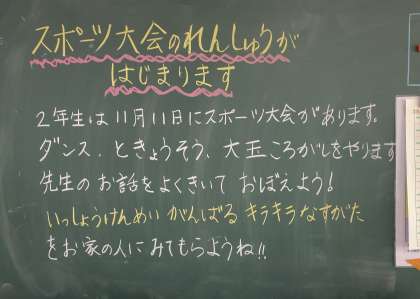 スポーツ大会のれんしゅうが
はじまります
2年生は11月11日にスポーツ大会があります。
ダンス、ときょうそう、大玉ころがしをやります
先生のお話をよくきいておぼえよう!
いっしょうけんめいがんばるキラキラなすがた
をお家の人にみてもらようね!!